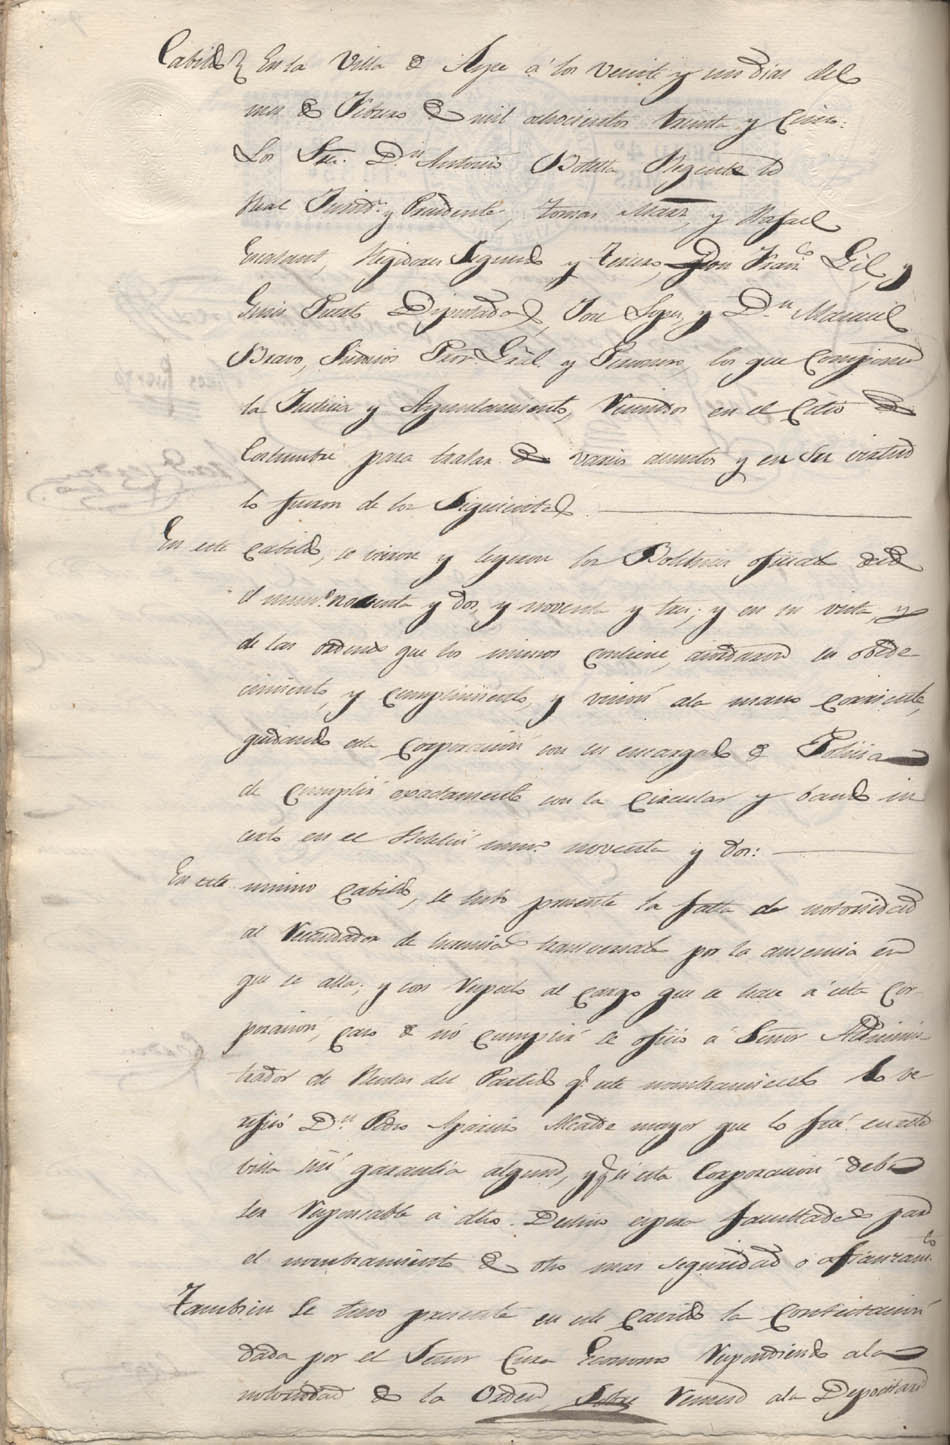 Cabildo En la Villa de Aspe á los veinte y un dias del
mes de Febrero de mil ochocientos treinta y cinco.
Los Sres. Dn Antonio Botella Regente la
Real Jurisdn. y Presidente, Tomas y Rafael
Regidores Segundo y Tercero, Don Franco. Gil, y
Luis Puerto Diputados, José Lopez, y Dn. Manuel
Bravo, Sindicos Pror. Gral. y Personero, los que componen
la Justicia y Ayuntamiento, reunidos en el Citio de
Costumbre para tratar de varios asuntos y en su virtud
lo fueron de los Siguientes
En este Cabildo, se vieron y leyeron los Boletines oficiales desde
el numo. noventa y dos, y noventa y tres; y en su vista, y
de las ordenes que los mismos contiene, acordaron su obede-
cimiento, y cumplimiento, y unión ala mano corriente,
quedando esta Corporación con su encargado de Policia
de cumplir exactamente con la Circular y bando in
serto en el Boletin numo. noventa y dos:
En este mismo Cabildo, se hubo presente la falta de notoriedad
al Recaudador de trimestre por la ausencia en
que se alla; y con respecto al cargo que se hace á esta Cor-
poración, caso de nó cumplir se ofició á Señor Adminis-
trador de Rentas del Partido qe. este nombramiento lo ve-
rificó Dn. Pedro Aparicio Alcalde mayor que lo fué en esta
villa sin garantia alguna, y qe. si esta Corporación debe
ser responsable á dho. Destino espera facultades para
el nombramiento de otro mas seguridad o afianzamto.
Tambien se tuvo presente en este Cavildo la Contestación
dada por el Señor Cura Economo respondiendo ala
notoriedad de la Orden sobre ala Depositaria